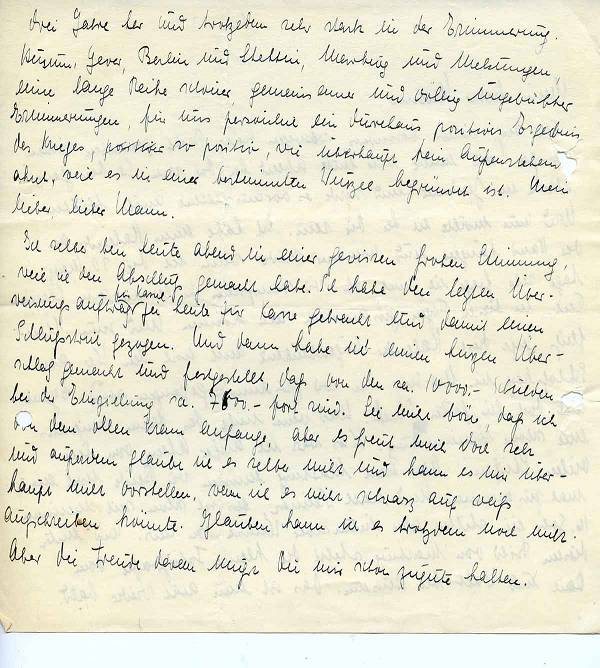 drei Jahre her und trotzdem sehr stark in der Erinnerung.
Husum, Jever, Berlin und Stettin, Marburg und Melsungen,
eine lange Reihe schöner, gemeinsamer und völlig ungetrübter
Erinnerungen, für uns persönlich ein durchaus positives Ergebnis
des Krieges, so positiv, wie überhaupt kein Außenstehender
ahnt, weil es in einer bestimmten Wurzel begründet ist. Mein
lieber, lieber Mann.
Ich selbst bin heute abend in einer gewissen frohen Stimmung,
weil ich den Abschluß gemacht habe. Ich habe den letzten Über-
weisungsauftrag für Kasse heute zur Kasse gebracht und damit einen
Schlußstrich gezogen. Und dann habe ich einen kurzen Über-
schlag gemacht und festgestellt, daß von den ca. 10000.- Schulden
bei der Einziehung ca. 7500.- fort sind. Sei nicht bös, daß ich
von dem ollen Kram anfange, aber es freut mich doch sehr
und außerdem glaube ich es selber nicht und kann es mir über-
haupt nicht vorstellen, wenn ich es nicht schwarz auf weiß
aufschreiben könnte. Glauben kann ich es trotzdem noch nicht.
Aber die Freude daran mußt Du mir schon zugute halten.